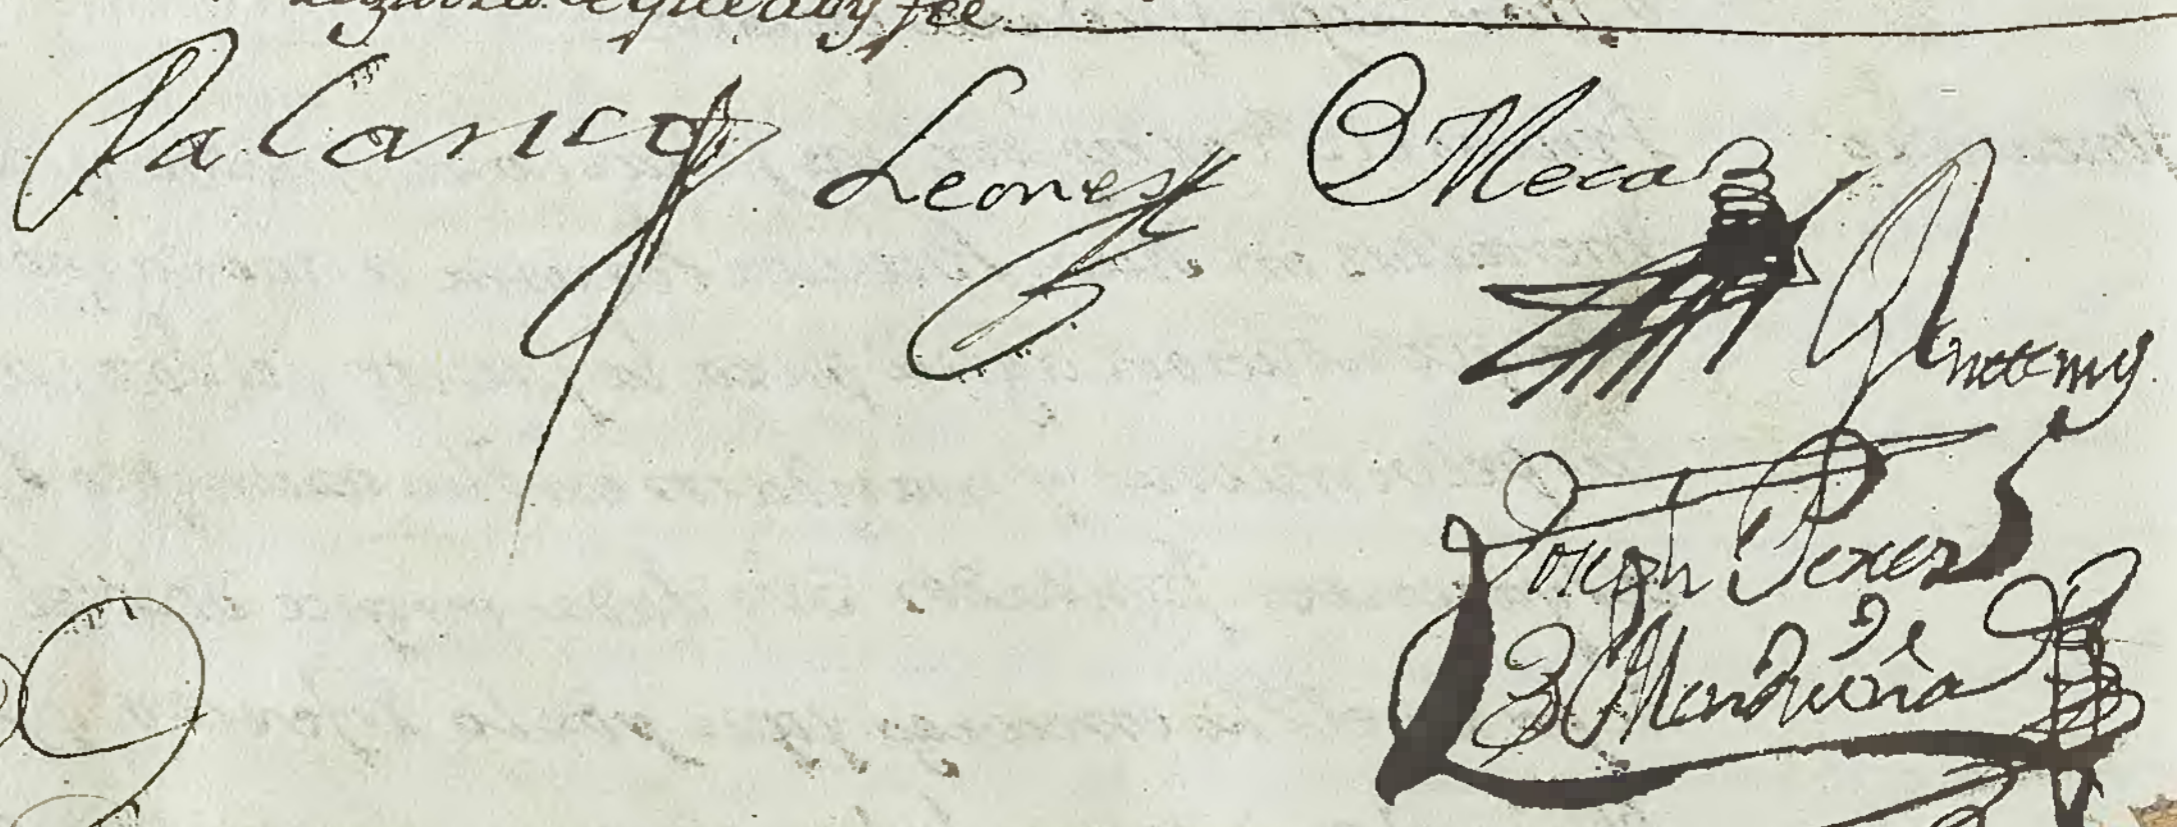 de que doy fee
Palanco Leones Meca
Antte my
Joseph Perez
de
Mondiola